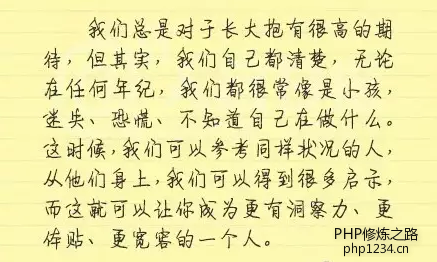 我们总是对于长大抱有很高的期
待，但其实，我们自己都清楚，无论
在任何年纪，我们都很常像是小孩，
迷失、恐慌、不知道自己在做什么。
这时候，我们可以参考同样状况的人，
从他们身上，我们可以得到很多启示，
而这就可以让你成为更有洞察力、更
体贴、更宽容的一个人。
PHP修炼之路
php1234.cn